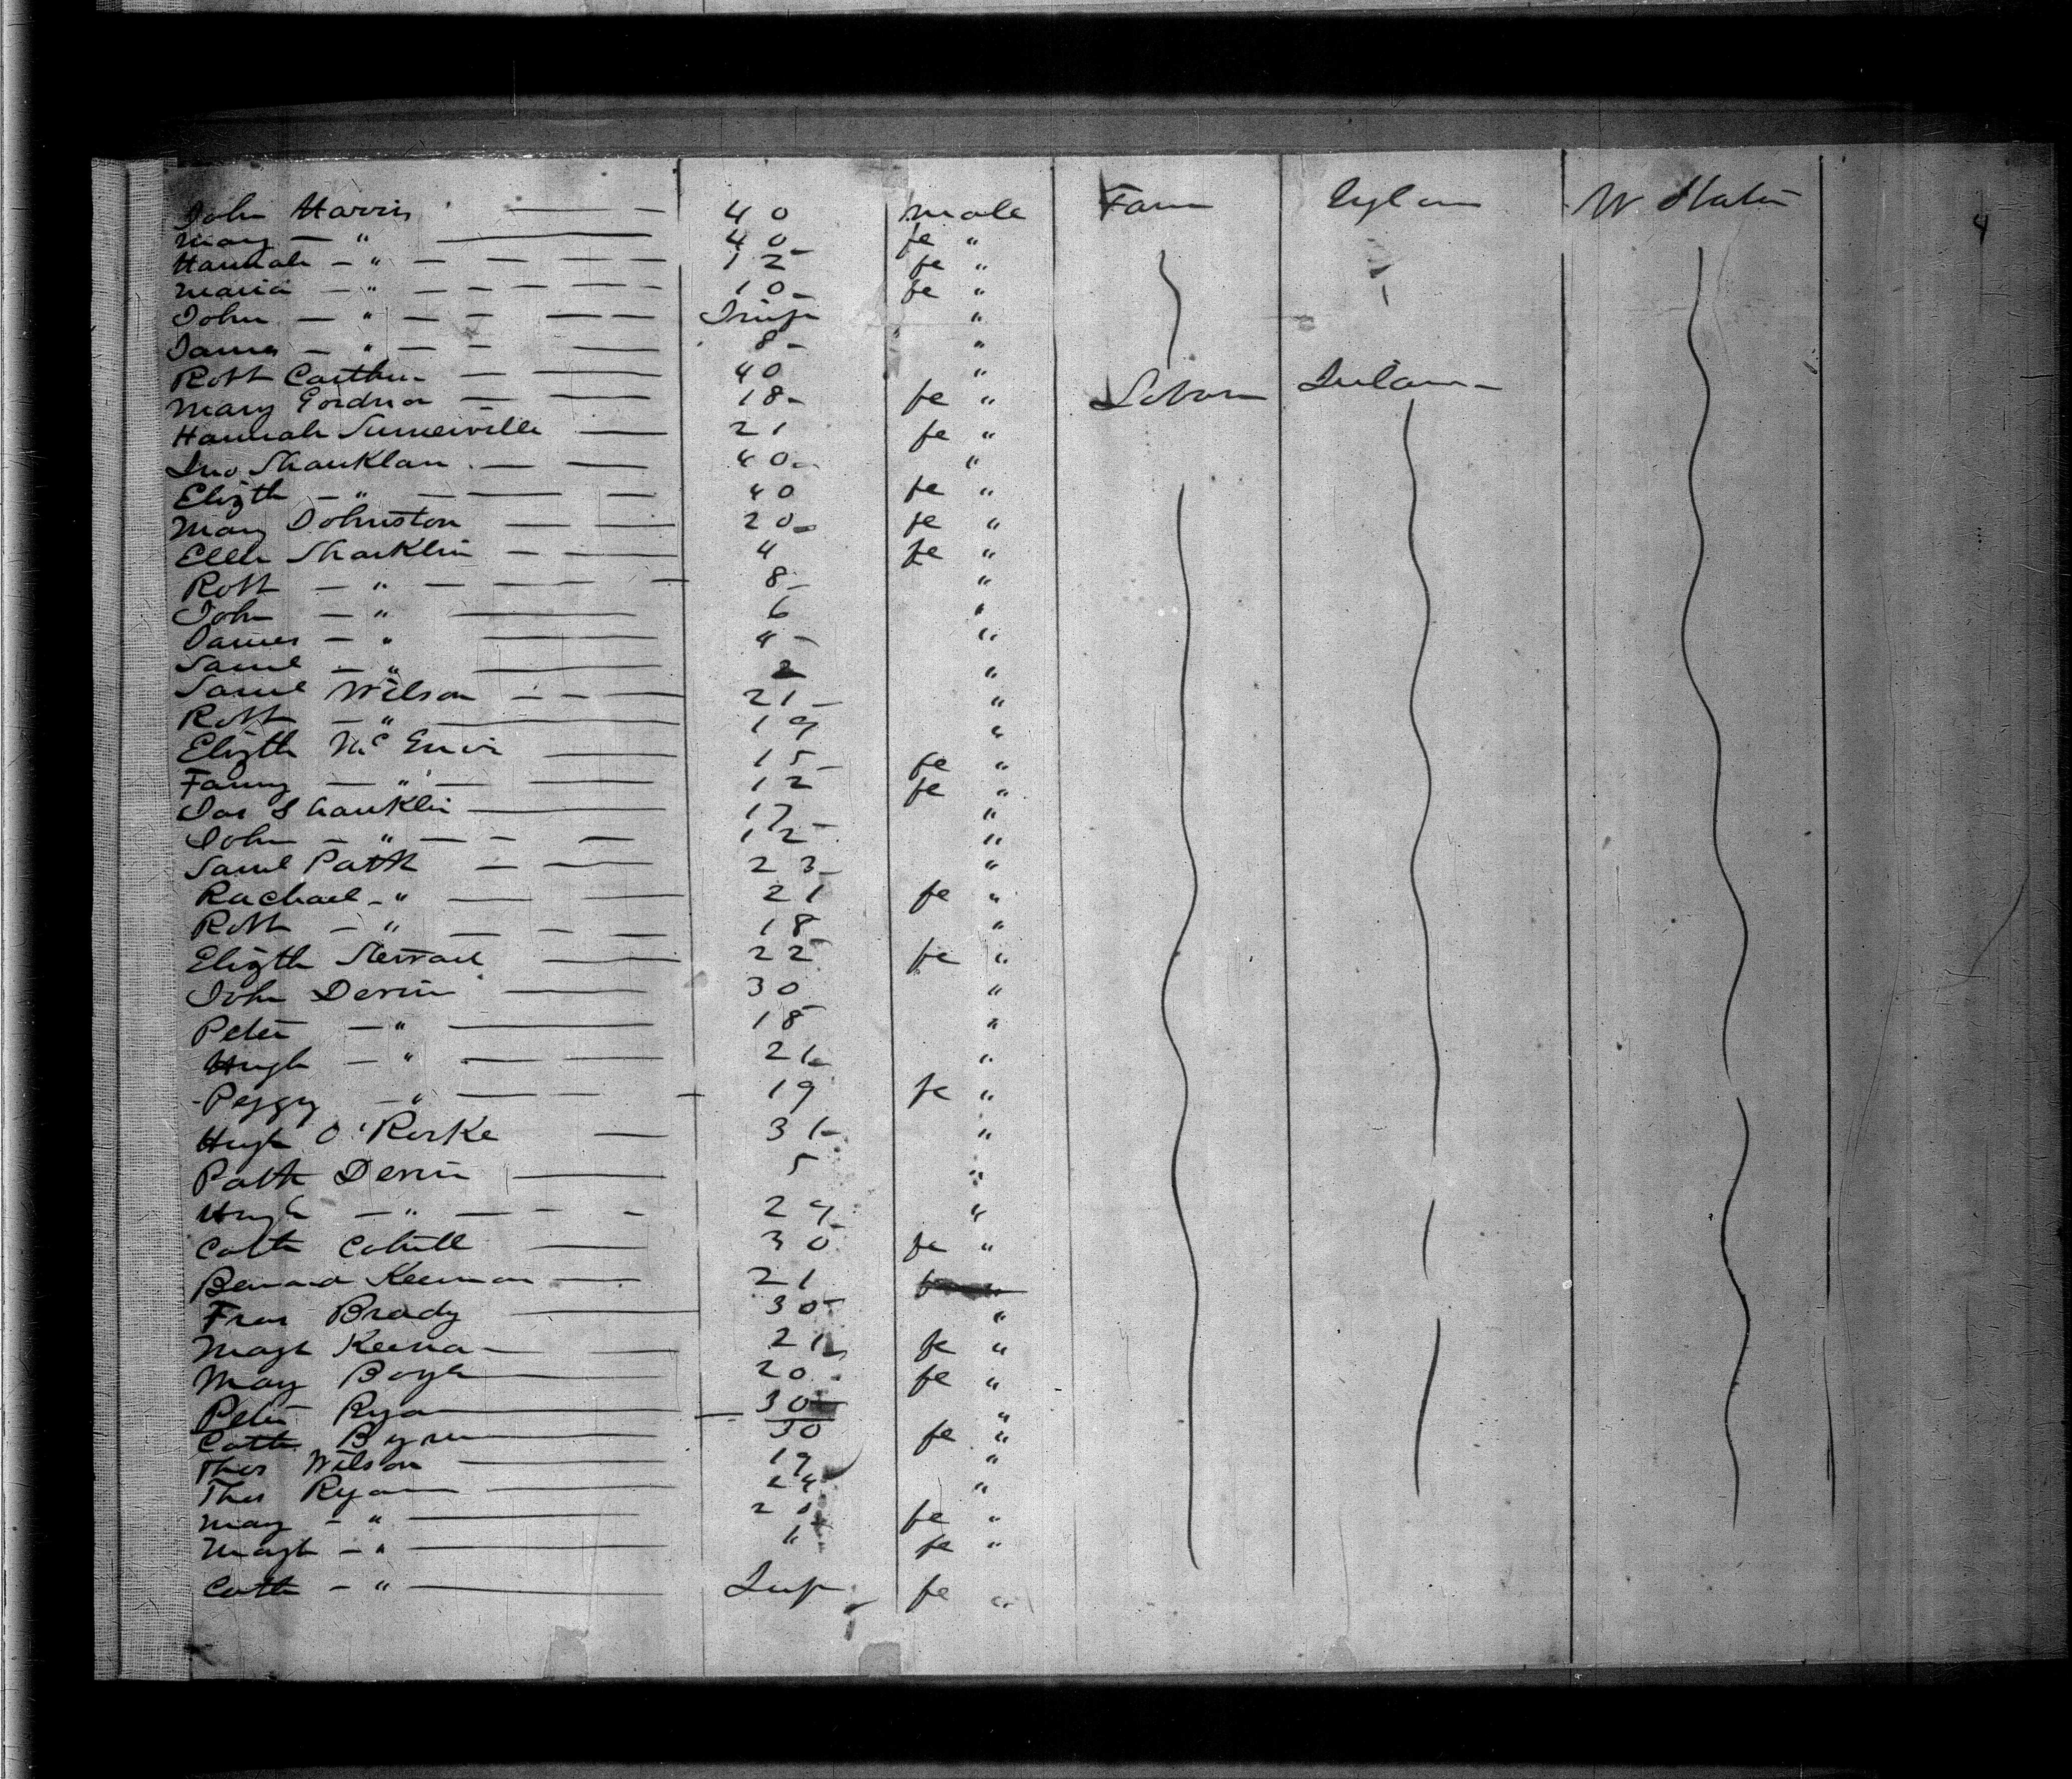 John Harris 40 male Farm England U States
Mary " 40 fe "
Hannah " 12 fe "
Maria " 10 fe "
John " Inft "
James " 8 "
Robt 40 "
Mary Gordon 18 fe " Labor Ireland
Hannah Sumerville 21 fe "
Jno Shanklan 40 "
Elizth " 40 fe "
Mary Johnston 20 fe "
Ellen Shanklin 4 fe "
Robt " 8 "
John " 6 "
James " 4 "
Saml " 2 "
Saml Wilson 21 "
Robt " 19 "
Elizth 15 fe "
Fanny " 12 fe "
Jas Shanklin 17 "
John " 12 "
Saml Patth 23 "
Rachael " 21 fe "
Robt " 18 "
Elizth 22 fe "
John Devin 30 "
Peter " 18 "
Hugh " 21 "
Peggy " 19 fe "
Hugh O'Rorke 31 "
Patk Devin 5 "
Hugh " 29 "
Cath Cahill 30 fe "
Bernard Keenan 21
Fras Brady 30 "
Magt Keena 21 fe "
May Boyle 20 fe "
Peter Ryan 30 "
Cath Byrne 30 fe "
Thos Wilson 19 "
Thos Ryan 24 "
May " fe "
Magt " fe "
Cath " Inf fe "
4